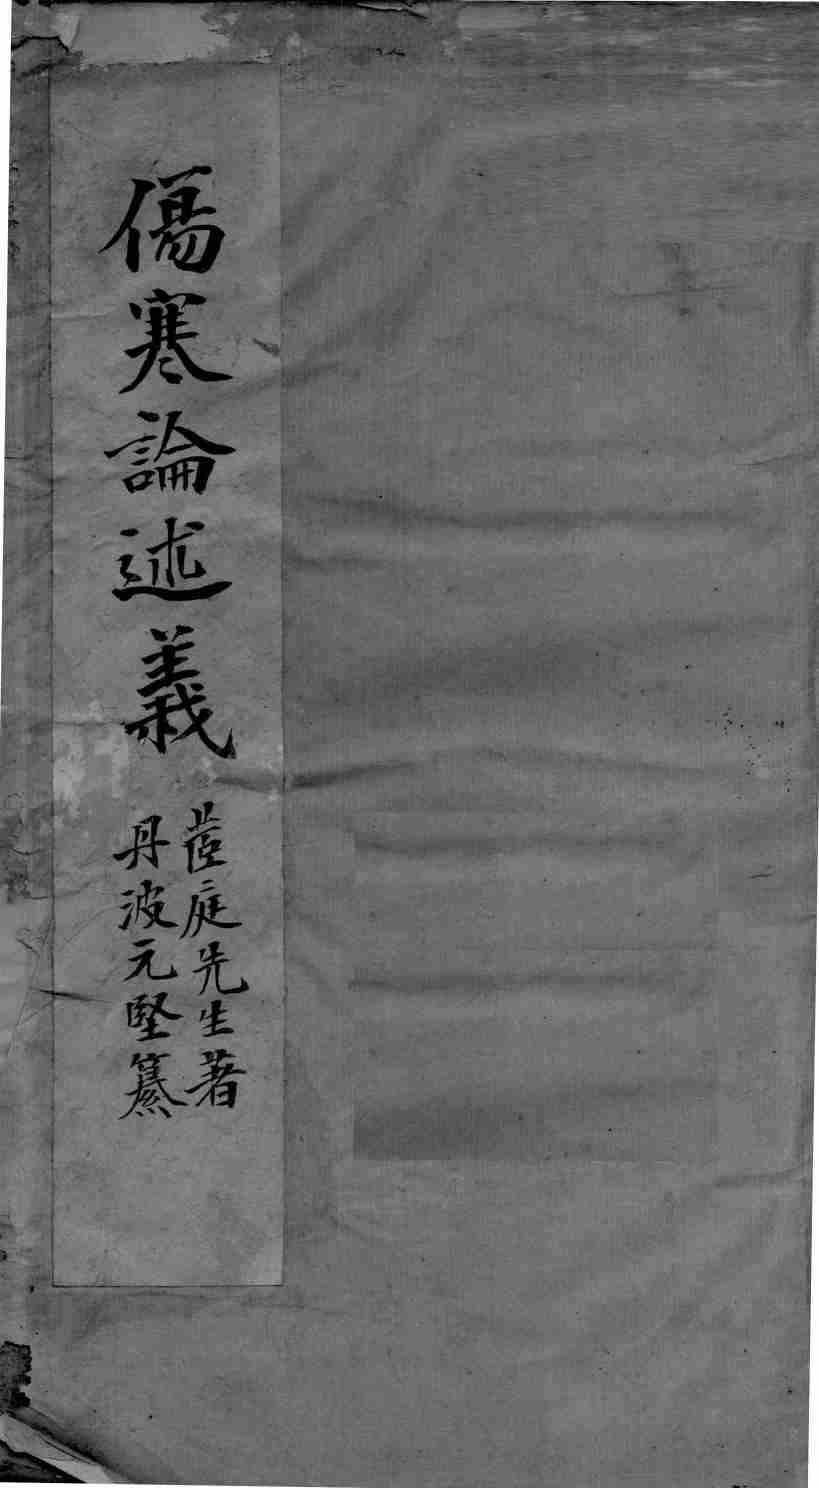 傷寒論述義
茝庭先生著
丹波元堅纂